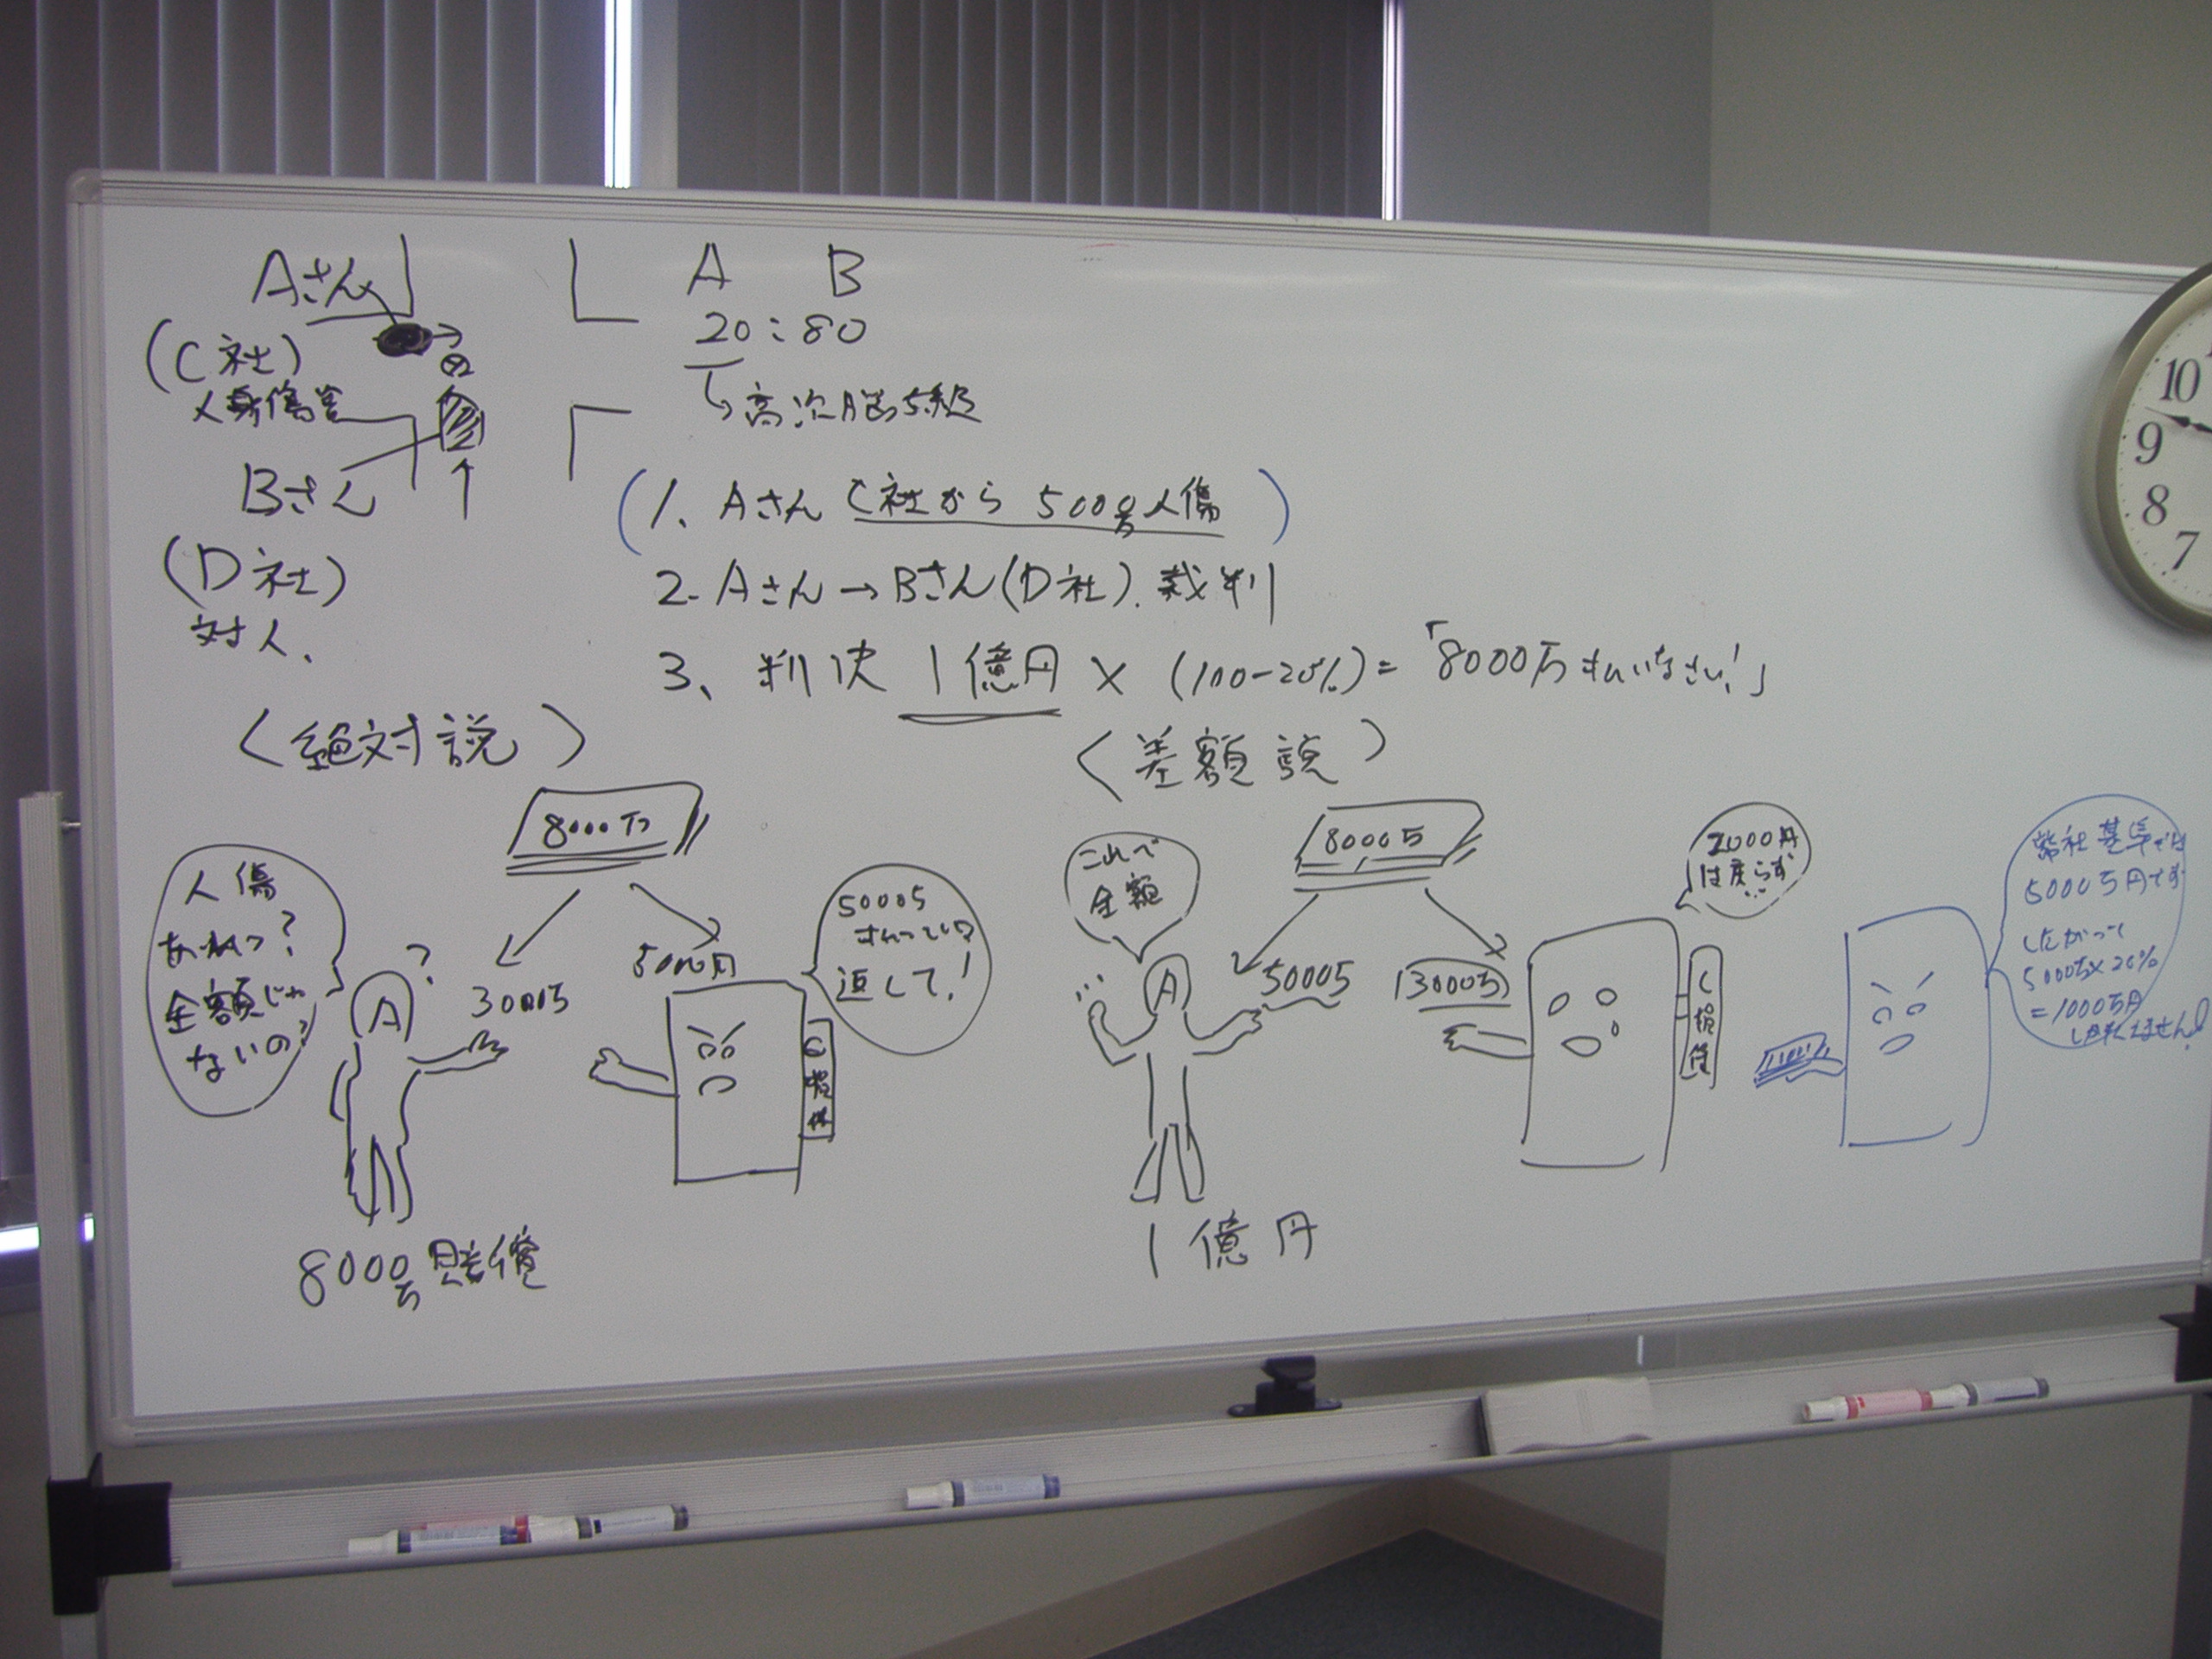 Aさん
(C社)
人身傷害
Bさん
(D社)
対人、
A B
20:80
高次脳5級
(1、Aさん C社から 5000万人傷)
2. Aさん→Bさん(D社). 裁判
3、判決 1億円 × (100-20%)=「8000万 払いなさい!」
〈絶対説〉
8000万
人傷
あれっ?
全額じゃ
ないの?
A
?
3000万
5000万円
5000万
払っている
返して!
C損保
8000万賠償
〈差額説〉
8000万
これで
全額
A
5000万
(3000万)
2000円
は戻らず
…
C損保
1億円
弊社基準では
5000万円です
したがって
5000万×20%
=1000万円
しか払えません!
10
9
8
7